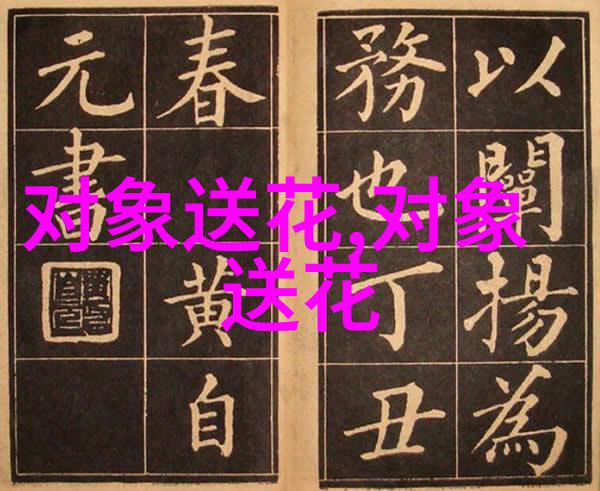 以闡揚為
務也丁丑
春
黃自
元書
对象送花,对象
送花